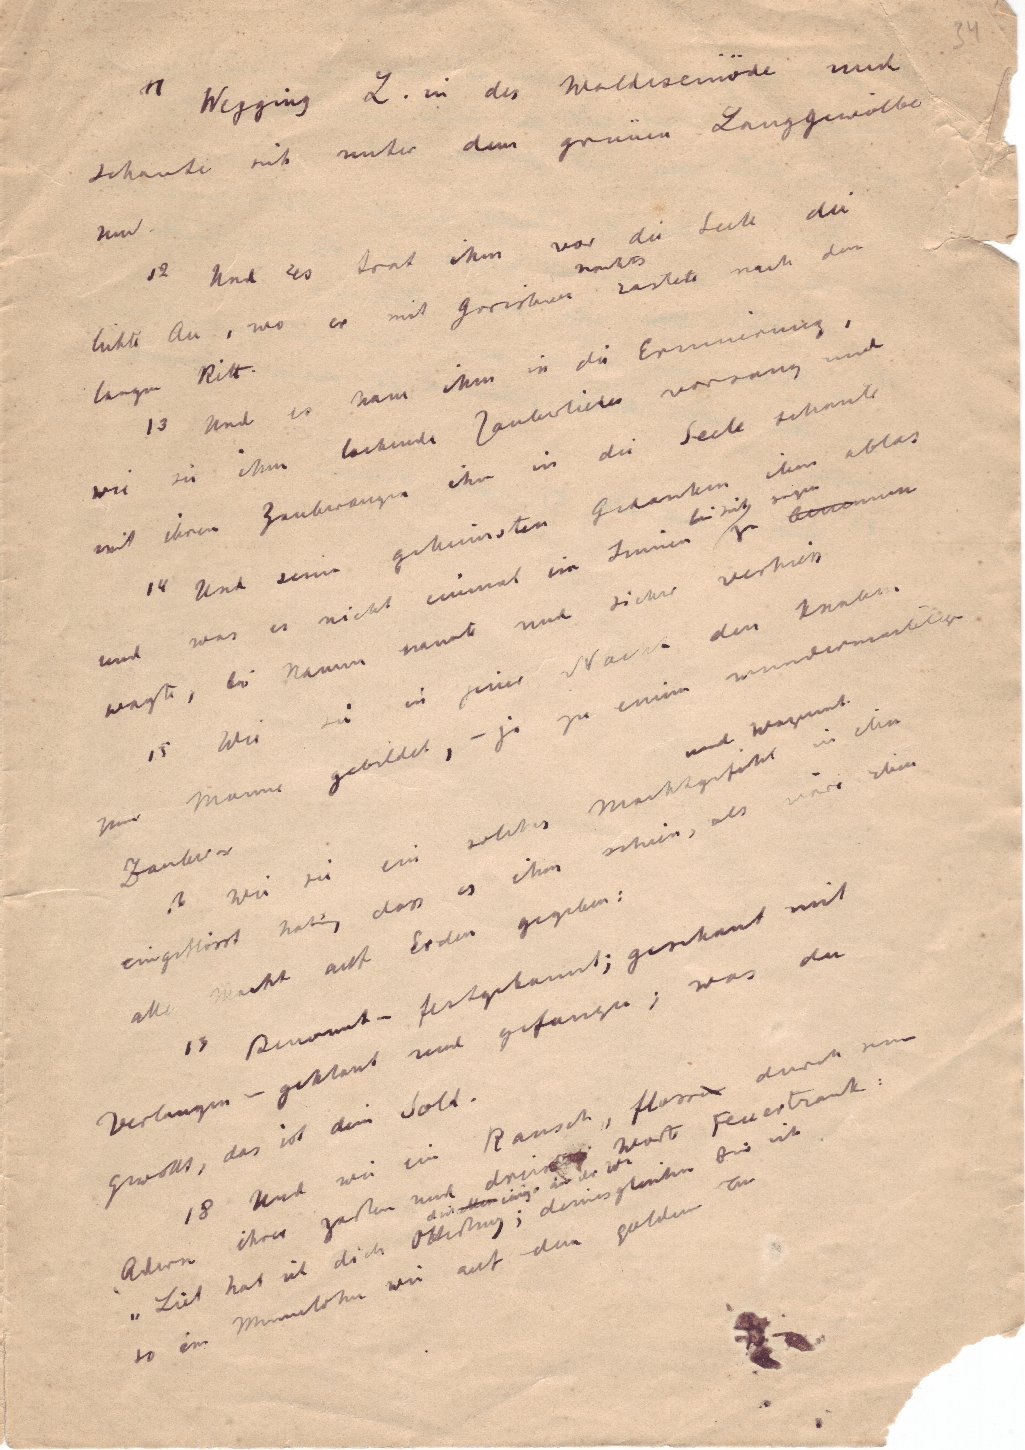 34
11 Wegging L. in des Waldeseinöde und
schaute sich unter dem grünen Langgewölbe
um.
12 Und es trat ihm vor die Seele die
lichte Au, wo er mit nachts rastete nach dem
langen Ritt.
13 Und es kam ihm in die Erinnerung,
wie sie ihm lockende Zauberlieder vorsang und
mit ihren Zauberaugen ihm in die Seele schaute
14 Und seine geheimsten Gedanken ihm ablas
und was er nicht einmal im Innern bei sich zu
wagte, bei Namen nannte und sicher verhiess
15 Wie sie in jener Nacht den Knaben
zum Manne gebildet, – ja zu einem wundermächtigen
Zauberer
Wie sie ein solches Machtgefühl und Wagemut in ihm
eingeflösst hatte, dass es ihm schien, als wäre ihm
alle Macht auf Erden gegeben:
Benannt – festgebannt; geschaut mit
Verlangen – geklaut und gefangen; was du
gewollt, das ist dein Sold.
18 Und wie ein Rausch, floss durch
Adern ihres zarten und Worte Feuertrank:
"Lieb hab ich dich ; deinesgleichen bin ich
so im Minnelohn wie auf dem golden